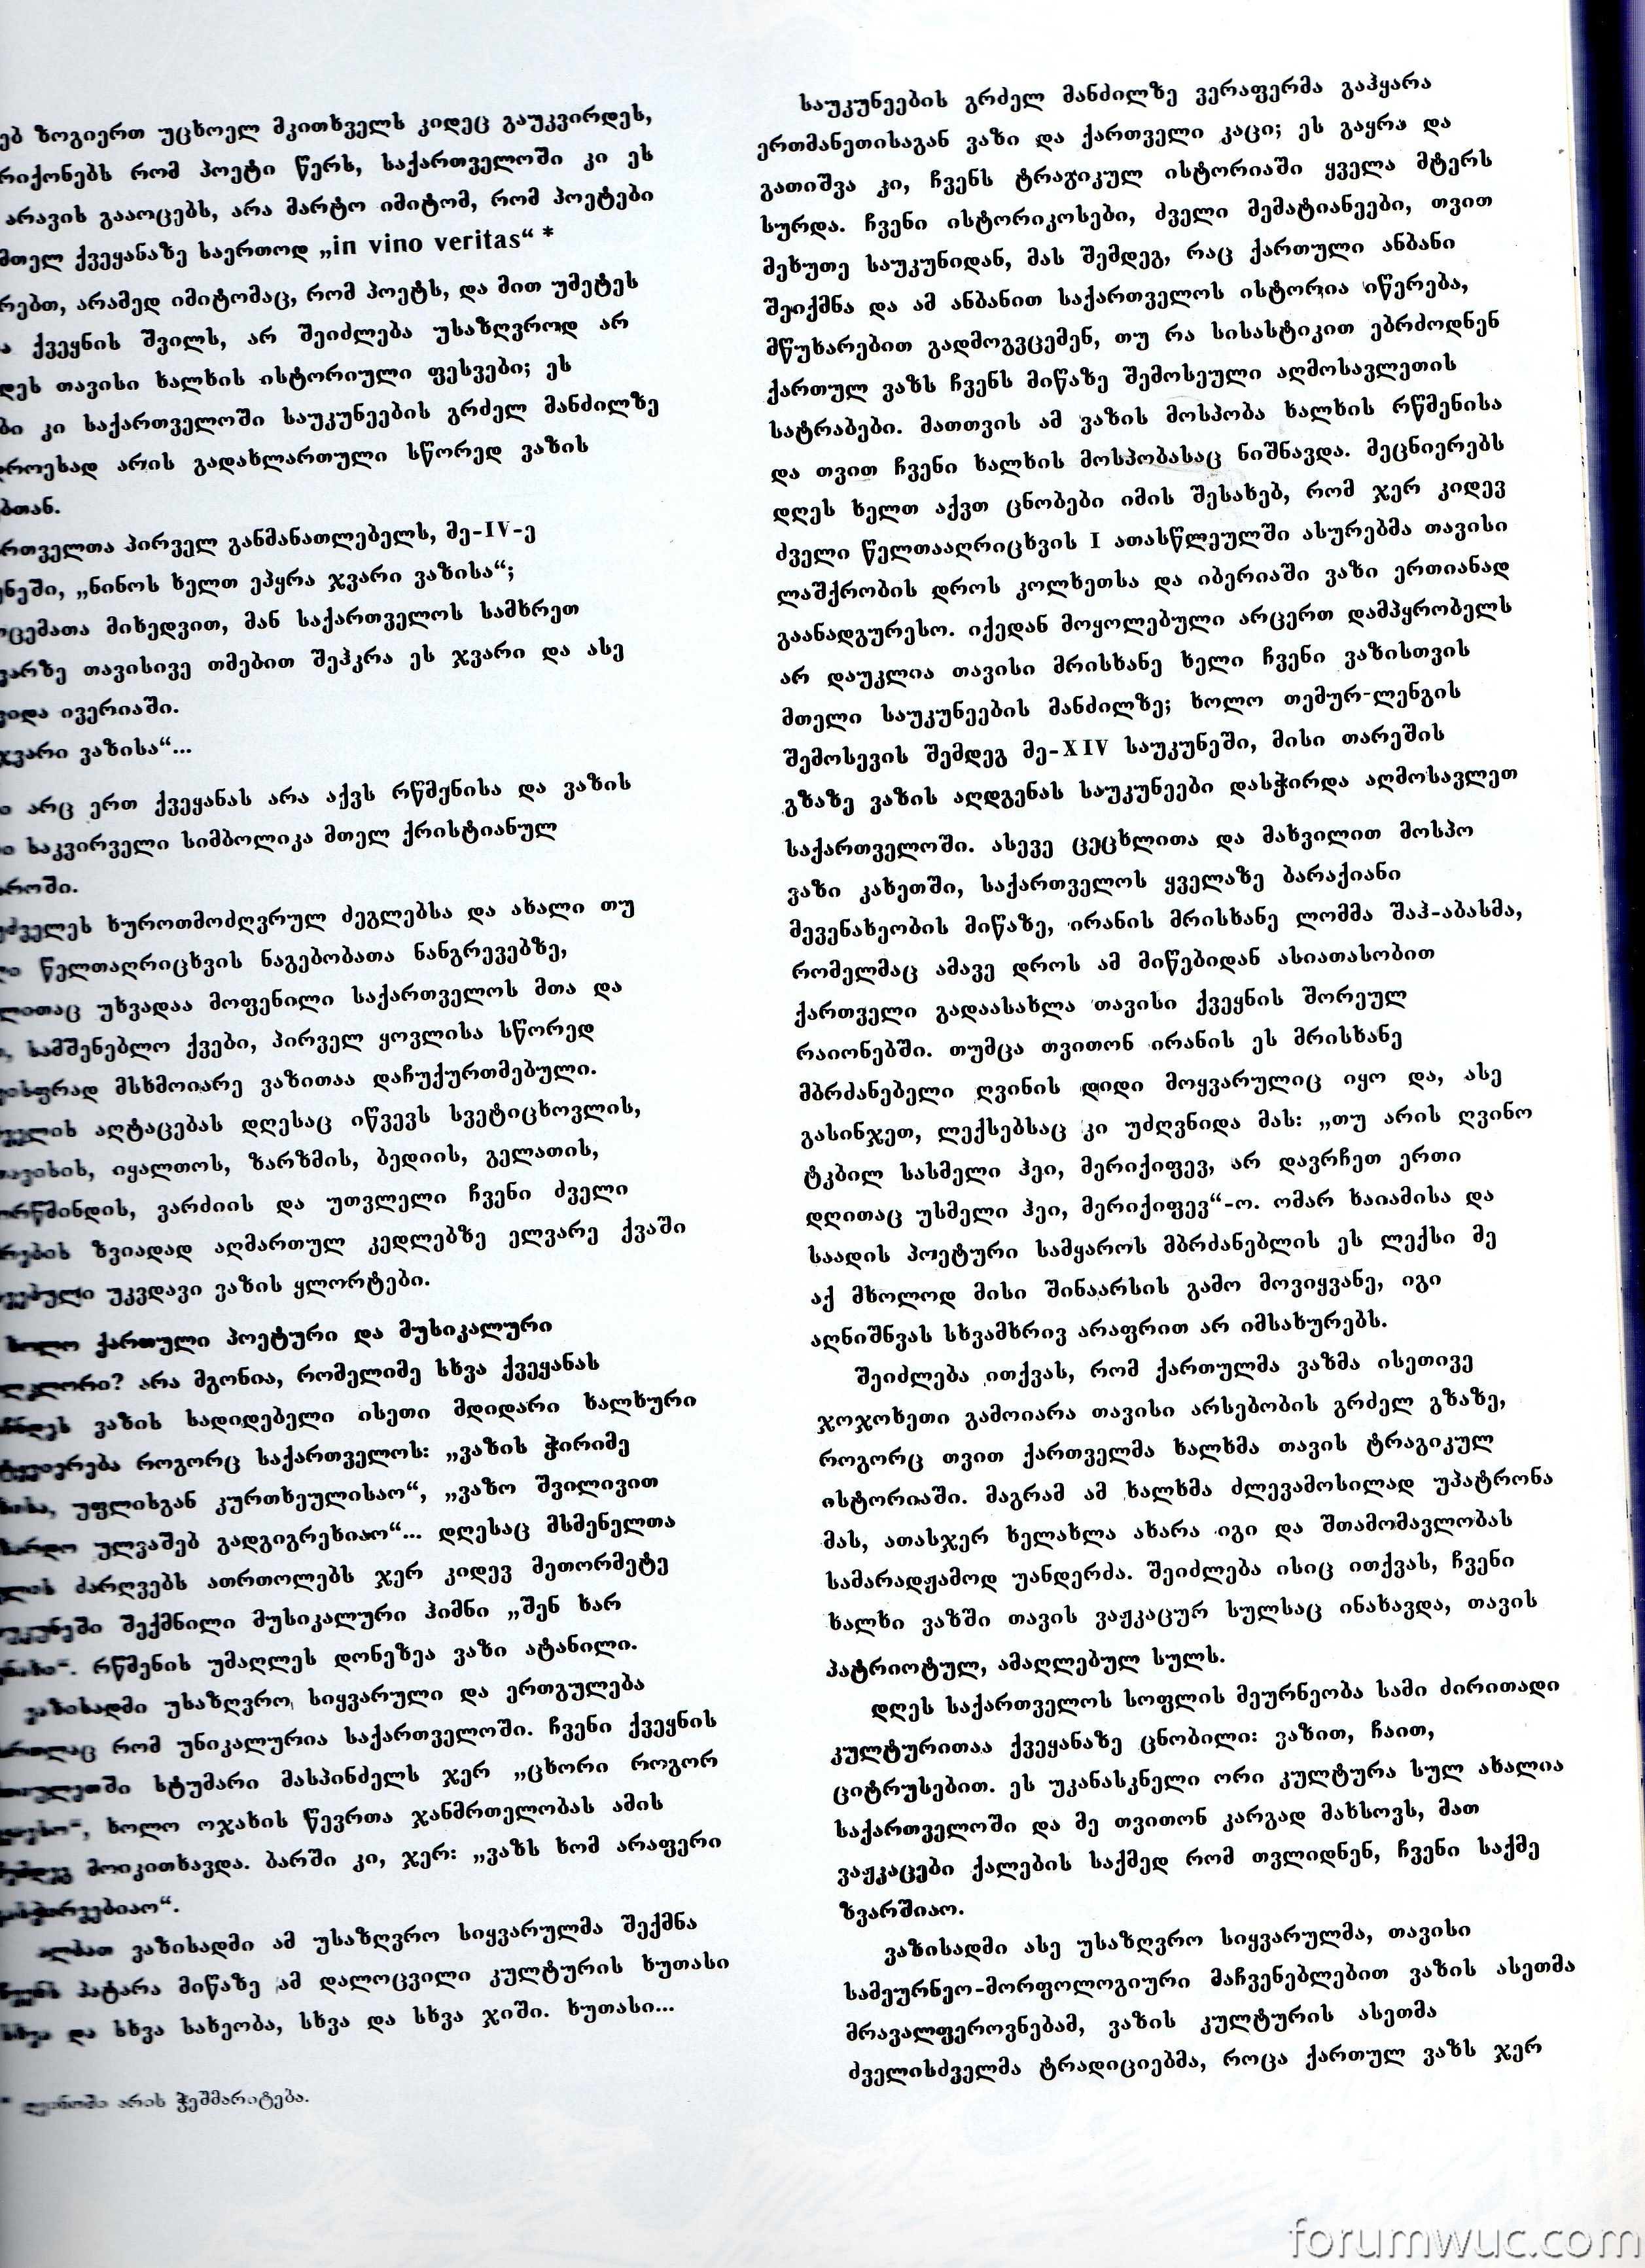 ზოგიერთ უცხოელ მკითხველს კიდეც გაუკვირდეს,
რომ პოეტი წერს, საქართველოში კი ეს
არავის გააოცებს, არა მარტო იმიტომ, რომ პოეტები
ქვეყანაზე საერთოდ „in vino veritas“ *
არამედ იმიტომაც, რომ პოეტს, და მით უმეტეს
ქვეყნის შვილს, არ შეიძლება უსაზღვროდ არ
თავისი ხალხის ისტორიული ფესვები; ეს
კი საქართველოში საუკუნეების გრძელ მანძილზე
არის გადახლართული სწორედ ვაზის
პირველ განმანათლებელს, მე-IV-ე
„ნინოს ხელთ ეპყრა ჯვარი ვაზისა“;
მიხედვით, მან საქართველოს სამხრეთ
თავისივე თმებით შეჰკრა ეს ჯვარი და ასე
ივერიაში.
ჯვარი ვაზისა“...
არც ერთ ქვეყანას არა აქვს რწმენისა და ვაზის
საკვირველი სიმბოლიკა მთელ ქრისტიანულ
ხუროთმოძღვრულ ძეგლებსა და ახალი თუ
წელთაღრიცხვის ნაგებობათა ნანგრევებზე,
უხვადაა მოფენილი საქართველოს მთა და
სამშენებლო ქვები, პირველ ყოვლისა სწორედ
მსხმოიარე ვაზითაა დაჩუქურთმებული.
აღტაცებას დღესაც იწვევს სვეტიცხოვლის,
იყალთოს, ზარზმის, ბედიის, გელათის,
ვარძიის და უთვლელი ჩვენი ძველი
ზვიადად აღმართულ კედლებზე ელვარე ქვაში
უკვდავი ვაზის ყლორტები.
ხოლო ქართული პოეტური და მუსიკალური
არა მგონია, რომელიმე სხვა ქვეყანას
ვაზის სადიდებელი ისეთი მდიდარი ხალხური
როგორც საქართველოს: „ვაზის ჭირიმე
უფლისგან კურთხეულისაო“, „ვაზო შვილივით
ულვაშებ გადგიგრეხიაო“... დღესაც მსმენელთა
ძარღვებს ათრთოლებს ჯერ კიდევ მეთორმეტე
შექმნილი მუსიკალური ჰიმნი „შენ ხარ
რწმენის უმაღლეს დონეზეა ვაზი ატანილი.
ვაზისადმი უსაზღვრო სიყვარული და ერთგულება
რომ უნიკალურია საქართველოში. ჩვენი ქვეყნის
სტუმარი მასპინძელს ჯერ „ცხორი როგორ
ხოლო ოჯახის წევრთა ჯანმრთელობას ამის
მოიკითხავდა. ბარში კი, ჯერ: „ვაზს ხომ არაფერი
ალბათ ვაზისადმი ამ უსაზღვრო სიყვარულმა შექმნა
პატარა მიწაზე ამ დალოცვილი კულტურის ხუთასი
სხვა და სხვა სახეობა, სხვა და სხვა ჯიში. ხუთასი...
* ღვინოში არის ჭეშმარიტება.
საუკუნეების გრძელ მანძილზე ვერაფერმა გაჰყარა
ერთმანეთისაგან ვაზი და ქართველი კაცი; ეს გაყრა და
გათიშვა კი, ჩვენს ტრაგიკულ ისტორიაში ყველა მტერს
სურდა. ჩვენი ისტორიკოსები, ძველი მემატიანეები, თვით
მეხუთე საუკუნიდან, მას შემდეგ, რაც ქართული ანბანი
შეიქმნა და ამ ანბანით საქართველოს ისტორია იწერება,
მწუხარებით გადმოგვცემენ, თუ რა სისასტიკით ებრძოდნენ
ქართულ ვაზს ჩვენს მიწაზე შემოსეული აღმოსავლეთის
სატრაპები. მათთვის ამ ვაზის მოსპობა ხალხის რწმენისა
და თვით ჩვენი ხალხის მოსპობასაც ნიშნავდა. მეცნიერებს
დღეს ხელთ აქვთ ცნობები იმის შესახებ, რომ ჯერ კიდევ
ძველი წელთააღრიცხვის I ათასწლეულში ასურებმა თავისი
ლაშქრობის დროს კოლხეთსა და იბერიაში ვაზი ერთიანად
გაანადგურესო. იქედან მოყოლებული არცერთ დამპყრობელს
არ დაუკლია თავისი მრისხანე ხელი ჩვენი ვაზისთვის
მთელი საუკუნეების მანძილზე; ხოლო თემურ-ლენგის
შემოსევის შემდეგ მე-XIV საუკუნეში, მისი თარეშის
გზაზე ვაზის აღდგენას საუკუნეები დასჭირდა აღმოსავლეთ
საქართველოში. ასევე ცეცხლითა და მახვილით მოსპო
ვაზი კახეთში, საქართველოს ყველაზე ბარაქიანი
მევენახეობის მიწაზე, ირანის მრისხანე ლომმა შაჰ-აბასმა,
რომელმაც ამავე დროს ამ მიწებიდან ასიათასობით
ქართველი გადაასახლა თავისი ქვეყნის შორეულ
რაიონებში. თუმცა თვითონ ირანის ეს მრისხანე
მბრძანებელი ღვინის დიდი მოყვარულიც იყო და, ასე
გასინჯეთ, ლექსებსაც კი უძღვნიდა მას: „თუ არის ღვინო
ტკბილ სასმელი ჰეი, მერიქიფევ, არ დავრჩეთ ერთი
დღითაც უსმელი ჰეი, მერიქიფევ“-ო. ომარ ხაიამისა და
საადის პოეტური სამყაროს მბრძანებლის ეს ლექსი მე
აქ მხოლოდ მისი შინაარსის გამო მოვიყვანე, იგი
აღნიშნვას სხვამხრივ არაფრით არ იმსახურებს.
შეიძლება ითქვას, რომ ქართულმა ვაზმა ისეთივე
ჯოჯოხეთი გამოიარა თავისი არსებობის გრძელ გზაზე,
როგორც თვით ქართველმა ხალხმა თავის ტრაგიკულ
ისტორიაში. მაგრამ ამ ხალხმა ძლევამოსილად უპატრონა
მას, ათასჯერ ხელახლა ახარა იგი და შთამომავლობას
სამარადჟამოდ უანდერძა. შეიძლება ისიც ითქვას, ჩვენი
ხალხი ვაზში თავის ვაჟკაცურ სულსაც ინახავდა, თავის
პატრიოტულ, ამაღლებულ სულს.
დღეს საქართველოს სოფლის მეურნეობა სამი ძირითადი
კულტურითაა ქვეყანაზე ცნობილი: ვაზით, ჩაით,
ციტრუსებით. ეს უკანასკნელი ორი კულტურა სულ ახალია
საქართველოში და მე თვითონ კარგად მახსოვს, მათ
ვაჟკაცები ქალების საქმედ რომ თვლიდნენ, ჩვენი საქმე
ზვარშიაო.
ვაზისადმი ასე უსაზღვრო სიყვარულმა, თავისი
სამეურნეო-მორფოლოგიური მაჩვენებლებით ვაზის ასეთმა
მრავალფეროვნებამ, ვაზის კულტურის ასეთმა
ძველისძველმა ტრადიციებმა, როცა ქართულ ვაზს ჯერ
forumwuc.com